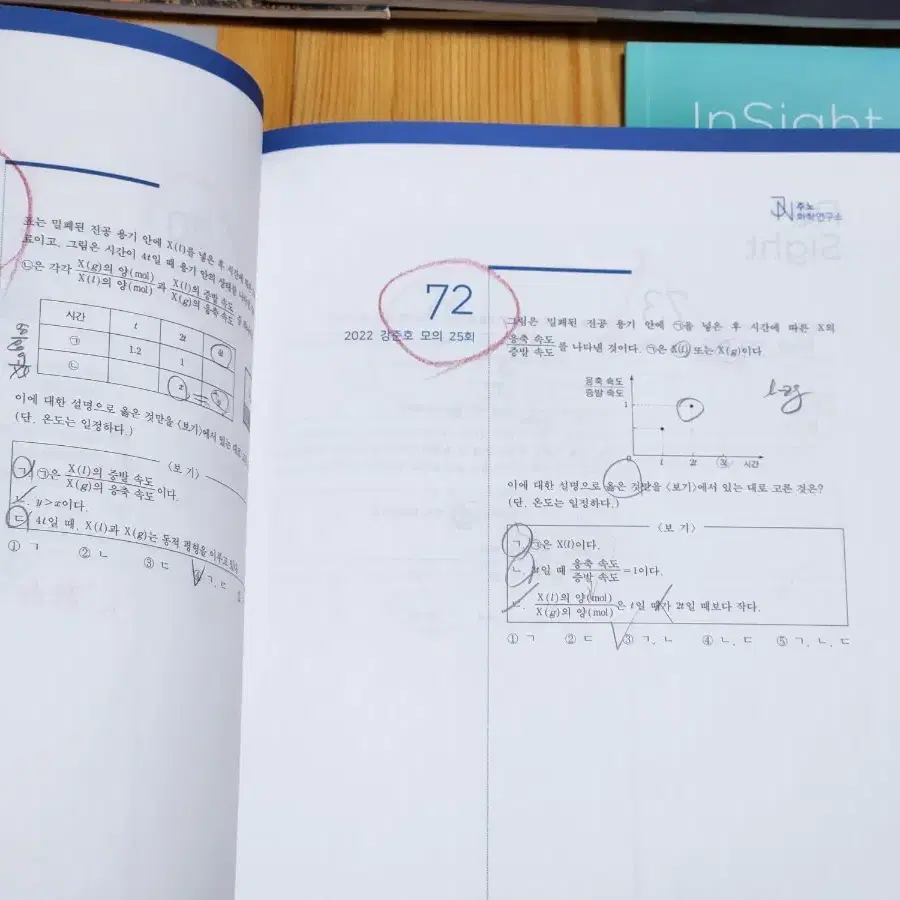 InSight
표는 밀폐된 진공 용기 안에 X(l)를 넣은 후 시간에
료이고, 그림은 시간이 4t일 때 용기 안의 상태를
㉡은 각각 X(g)의 양(mol)/X(l)의 양(mol) 과 X(l)의 증발 속도/X(g)의 응축 속도
시간 t 2t 4t
㉠ 1.2 1
㉡ x y
이에 대한 설명으로 옳은 것만을 〈보기〉에서 있는 대로
(단, 온도는 일정하다.)
〈보 기〉
ㄱ. ㉠은 X(l)의 증발 속도/X(g)의 응축 속도 이다.
ㄴ. y>x이다.
ㄷ. 4t일 때, X(l)과 X(g)는 동적 평형을 이루고
① ㄱ ② ㄴ ③ ㄷ ④ ㄱ, ㄷ
주노
화학연구소
72
2022 강준호 모의 25회
그림은 밀폐된 진공 용기 안에 ㉠를 넣은 후 시간에 따른 X의
응축 속도/증발 속도 를 나타낸 것이다. ㉠은 X(l) 또는 X(g)이다.
응축 속도/증발 속도
1
0 t 2t 3t 시간
l→g
이에 대한 설명으로 옳은 것만을 〈보기〉에서 있는 대로 고른 것은?
(단, 온도는 일정하다.)
〈보 기〉
ㄱ. ㉠은 X(l)이다.
ㄴ. 3t일 때 응축 속도/증발 속도 =1이다.
ㄷ. X(l)의 양(mol)/X(g)의 양(mol) 은 t일 때가 2t일 때보다 작다.
① ㄱ ② ㄷ ③ ㄱ, ㄴ ④ ㄴ, ㄷ ⑤ ㄱ, ㄴ, ㄷ